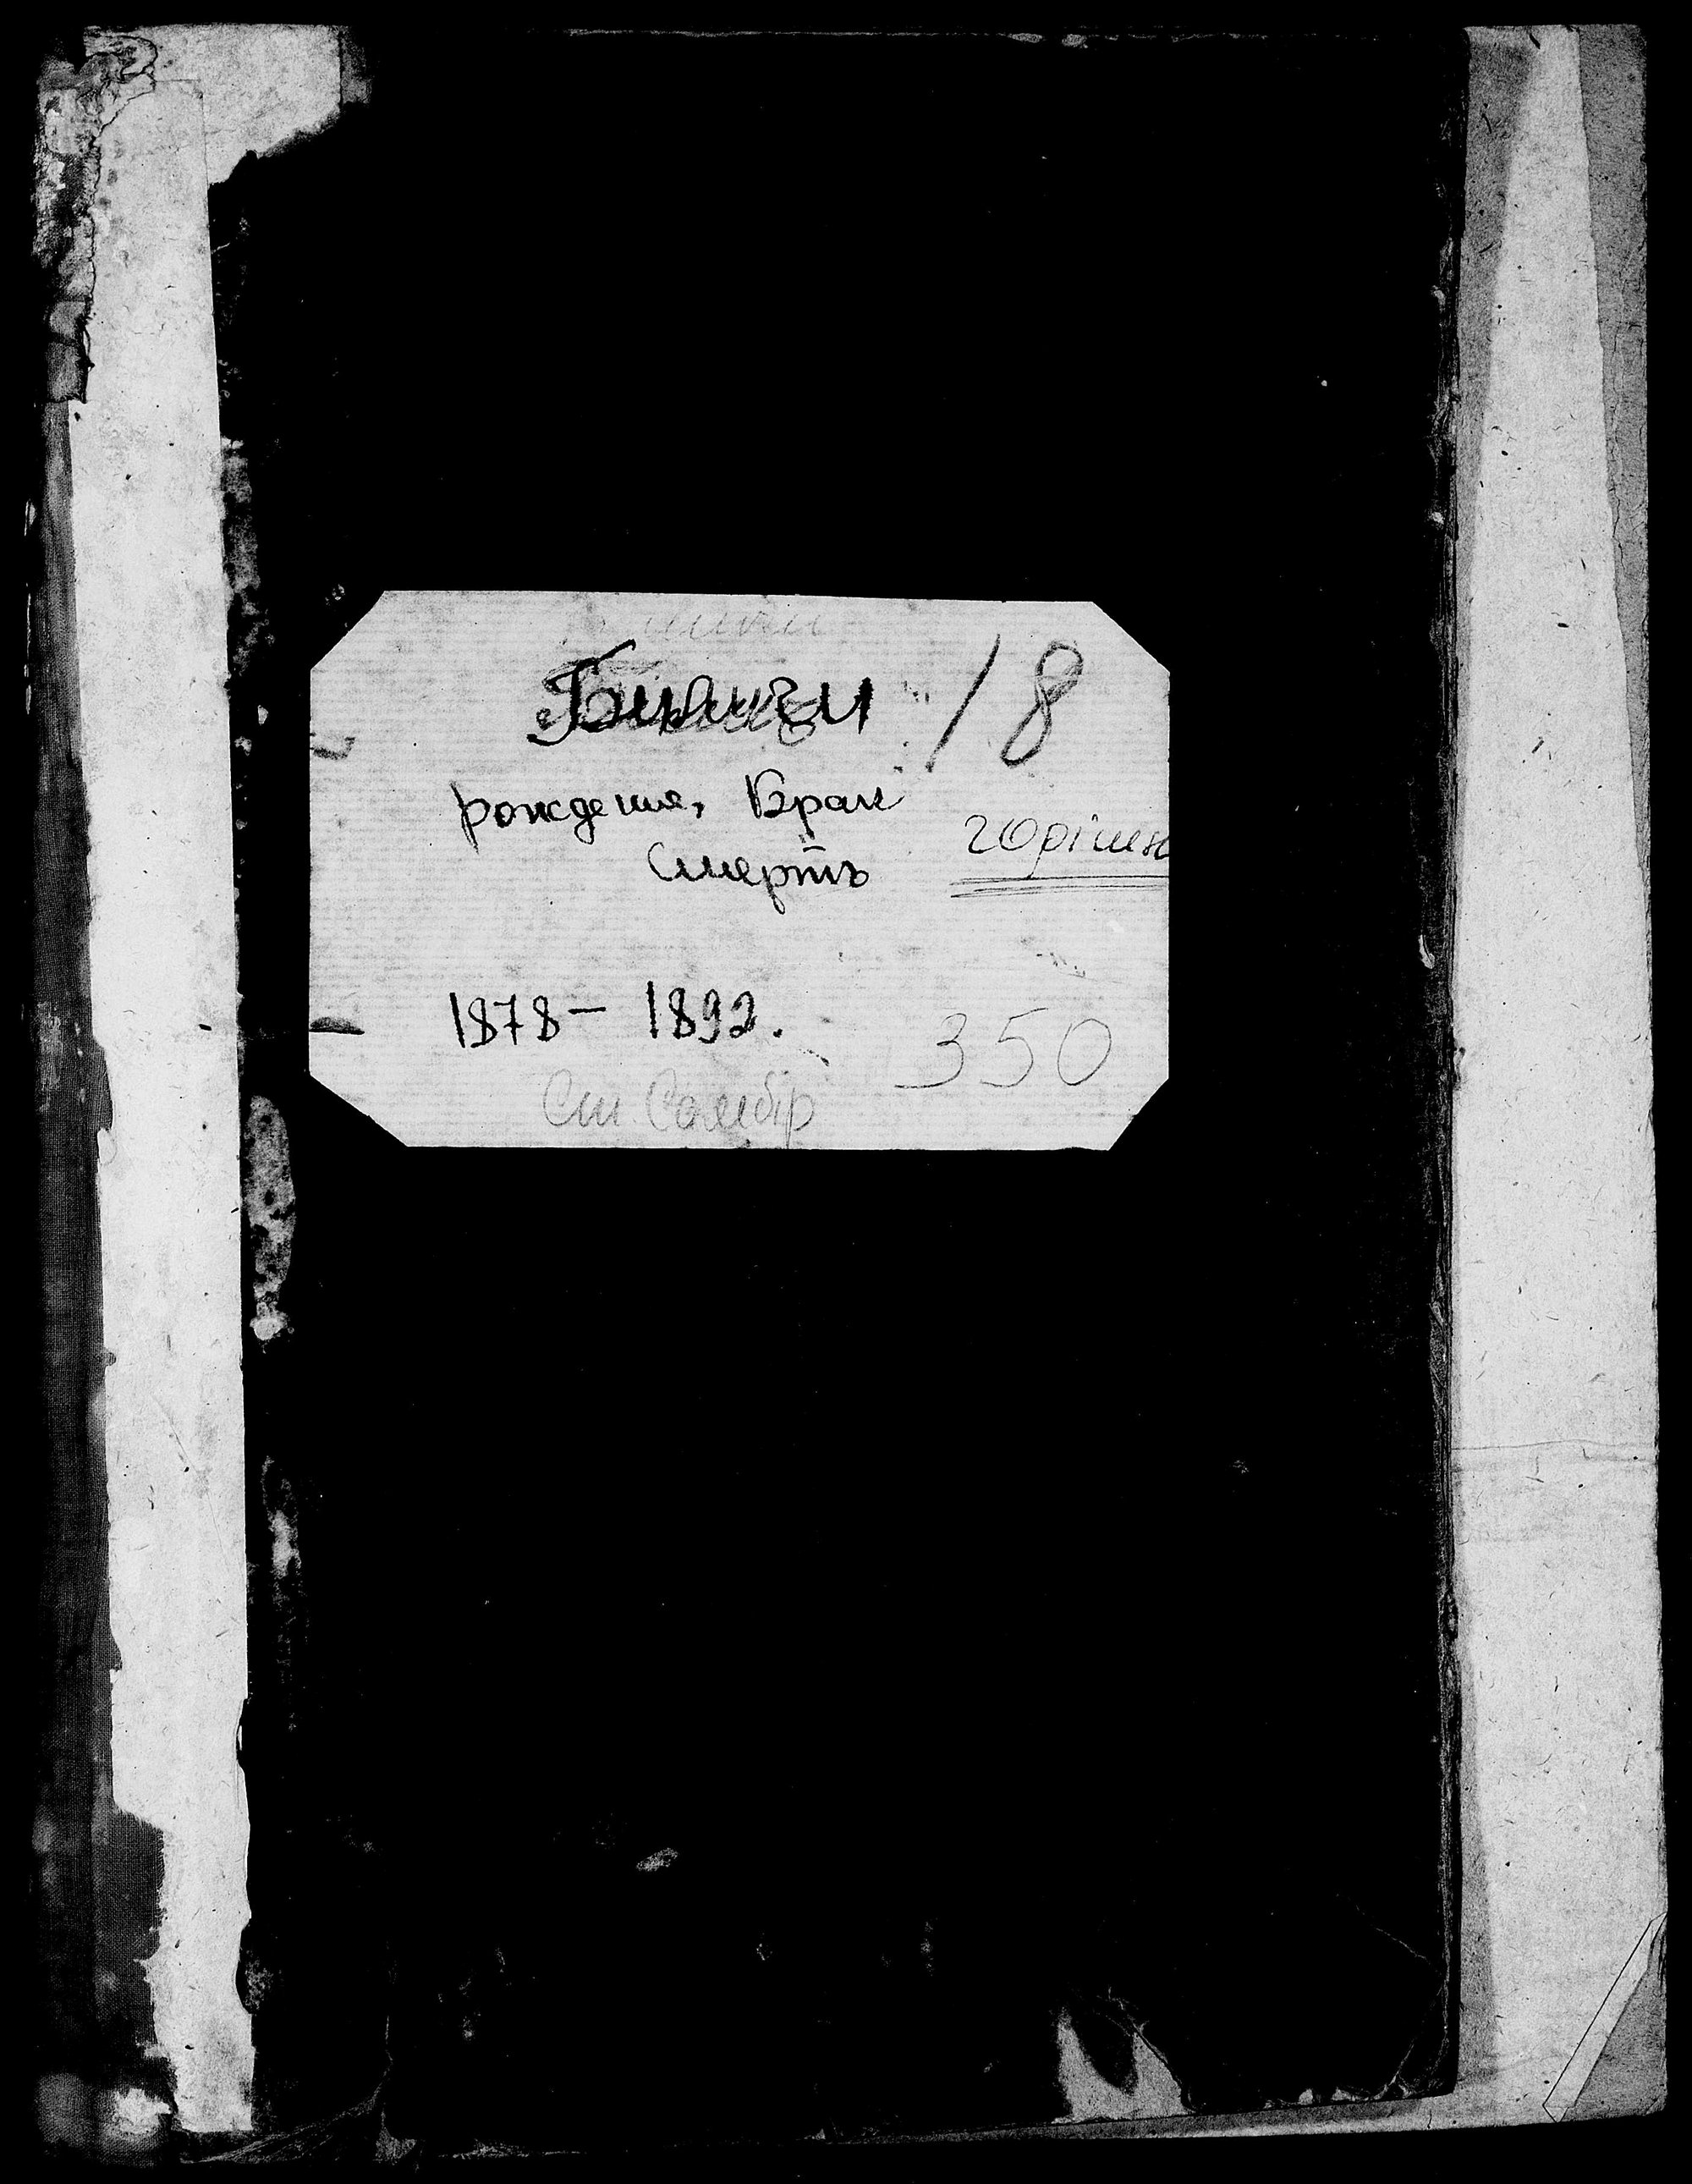 / 8
рождения, Брак
Смерть
горішн
1878 – 1892.
350
Ст. Самбір